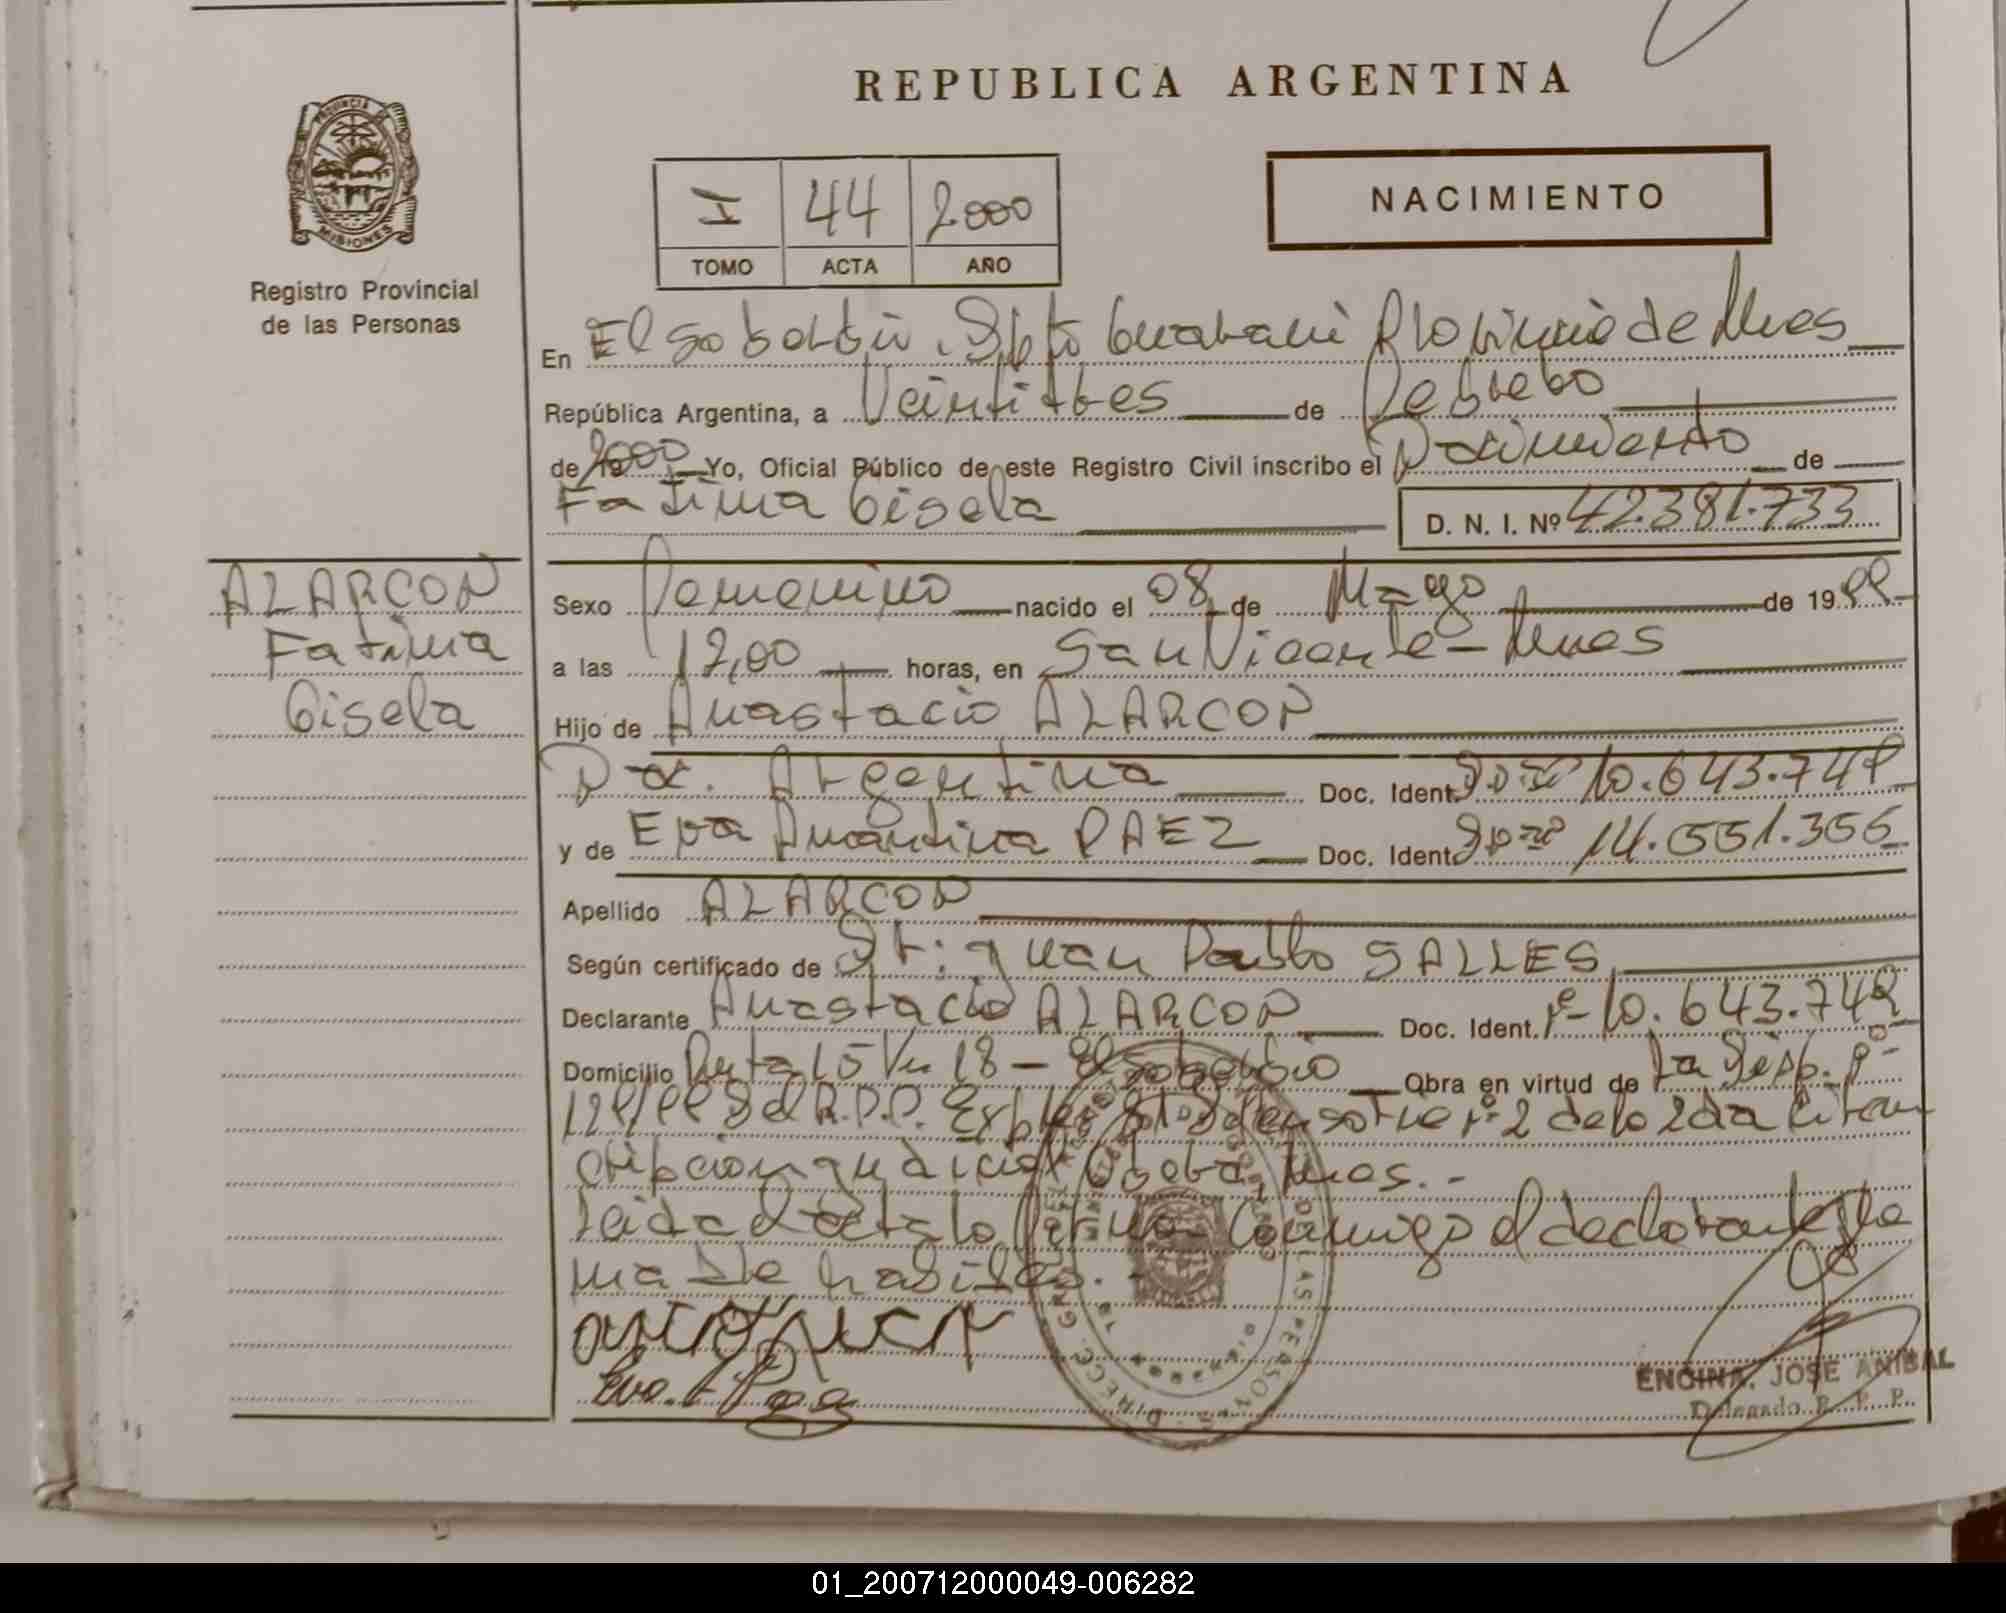 REPUBLICA ARGENTINA
PROVINCIA DE
MISIONES
Registro Provincial
de las Personas
I 44 2000
TOMO ACTA AÑO
NACIMIENTO
En El Soberbio, Dpto Guarani Provincia de Mnes
República Argentina, a Veintitres de Febrero
de 2000 Yo, Oficial Público de este Registro Civil inscribo el Nacimiento de
Fatima Gisela
D. N. I. Nº 42.381.733
ALARCON
Fatima
Gisela
Sexo Femenino nacido el 08 de Mayo de 1999
a las 12,00 horas, en San Vicente - Mnes
Hijo de Anastacio ALARCON
Na. Argentina Doc. Ident. 10.643.749
y de Eva Amantina PAEZ Doc. Ident. 14.551.356
Apellido ALARCON
Según certificado de Dr: Juan Pablo SALLES
Declarante Anastacio ALARCON Doc. Ident. Nº 10.643.749
Domicilio Ruta 15 Km 18 - El Soberbio Obra en virtud de la Disp. Nº
129/99 del R.P.P. Defensoria Nº 2 de la 2da Circun
cripcion Judicial Obera, Mnes. -
Leida el acta la firma conmigo el declarante y la
ma de habiles. -
ENCINA, JOSE ANIBAL
Delegado R. P. P.
01_200712000049-006282